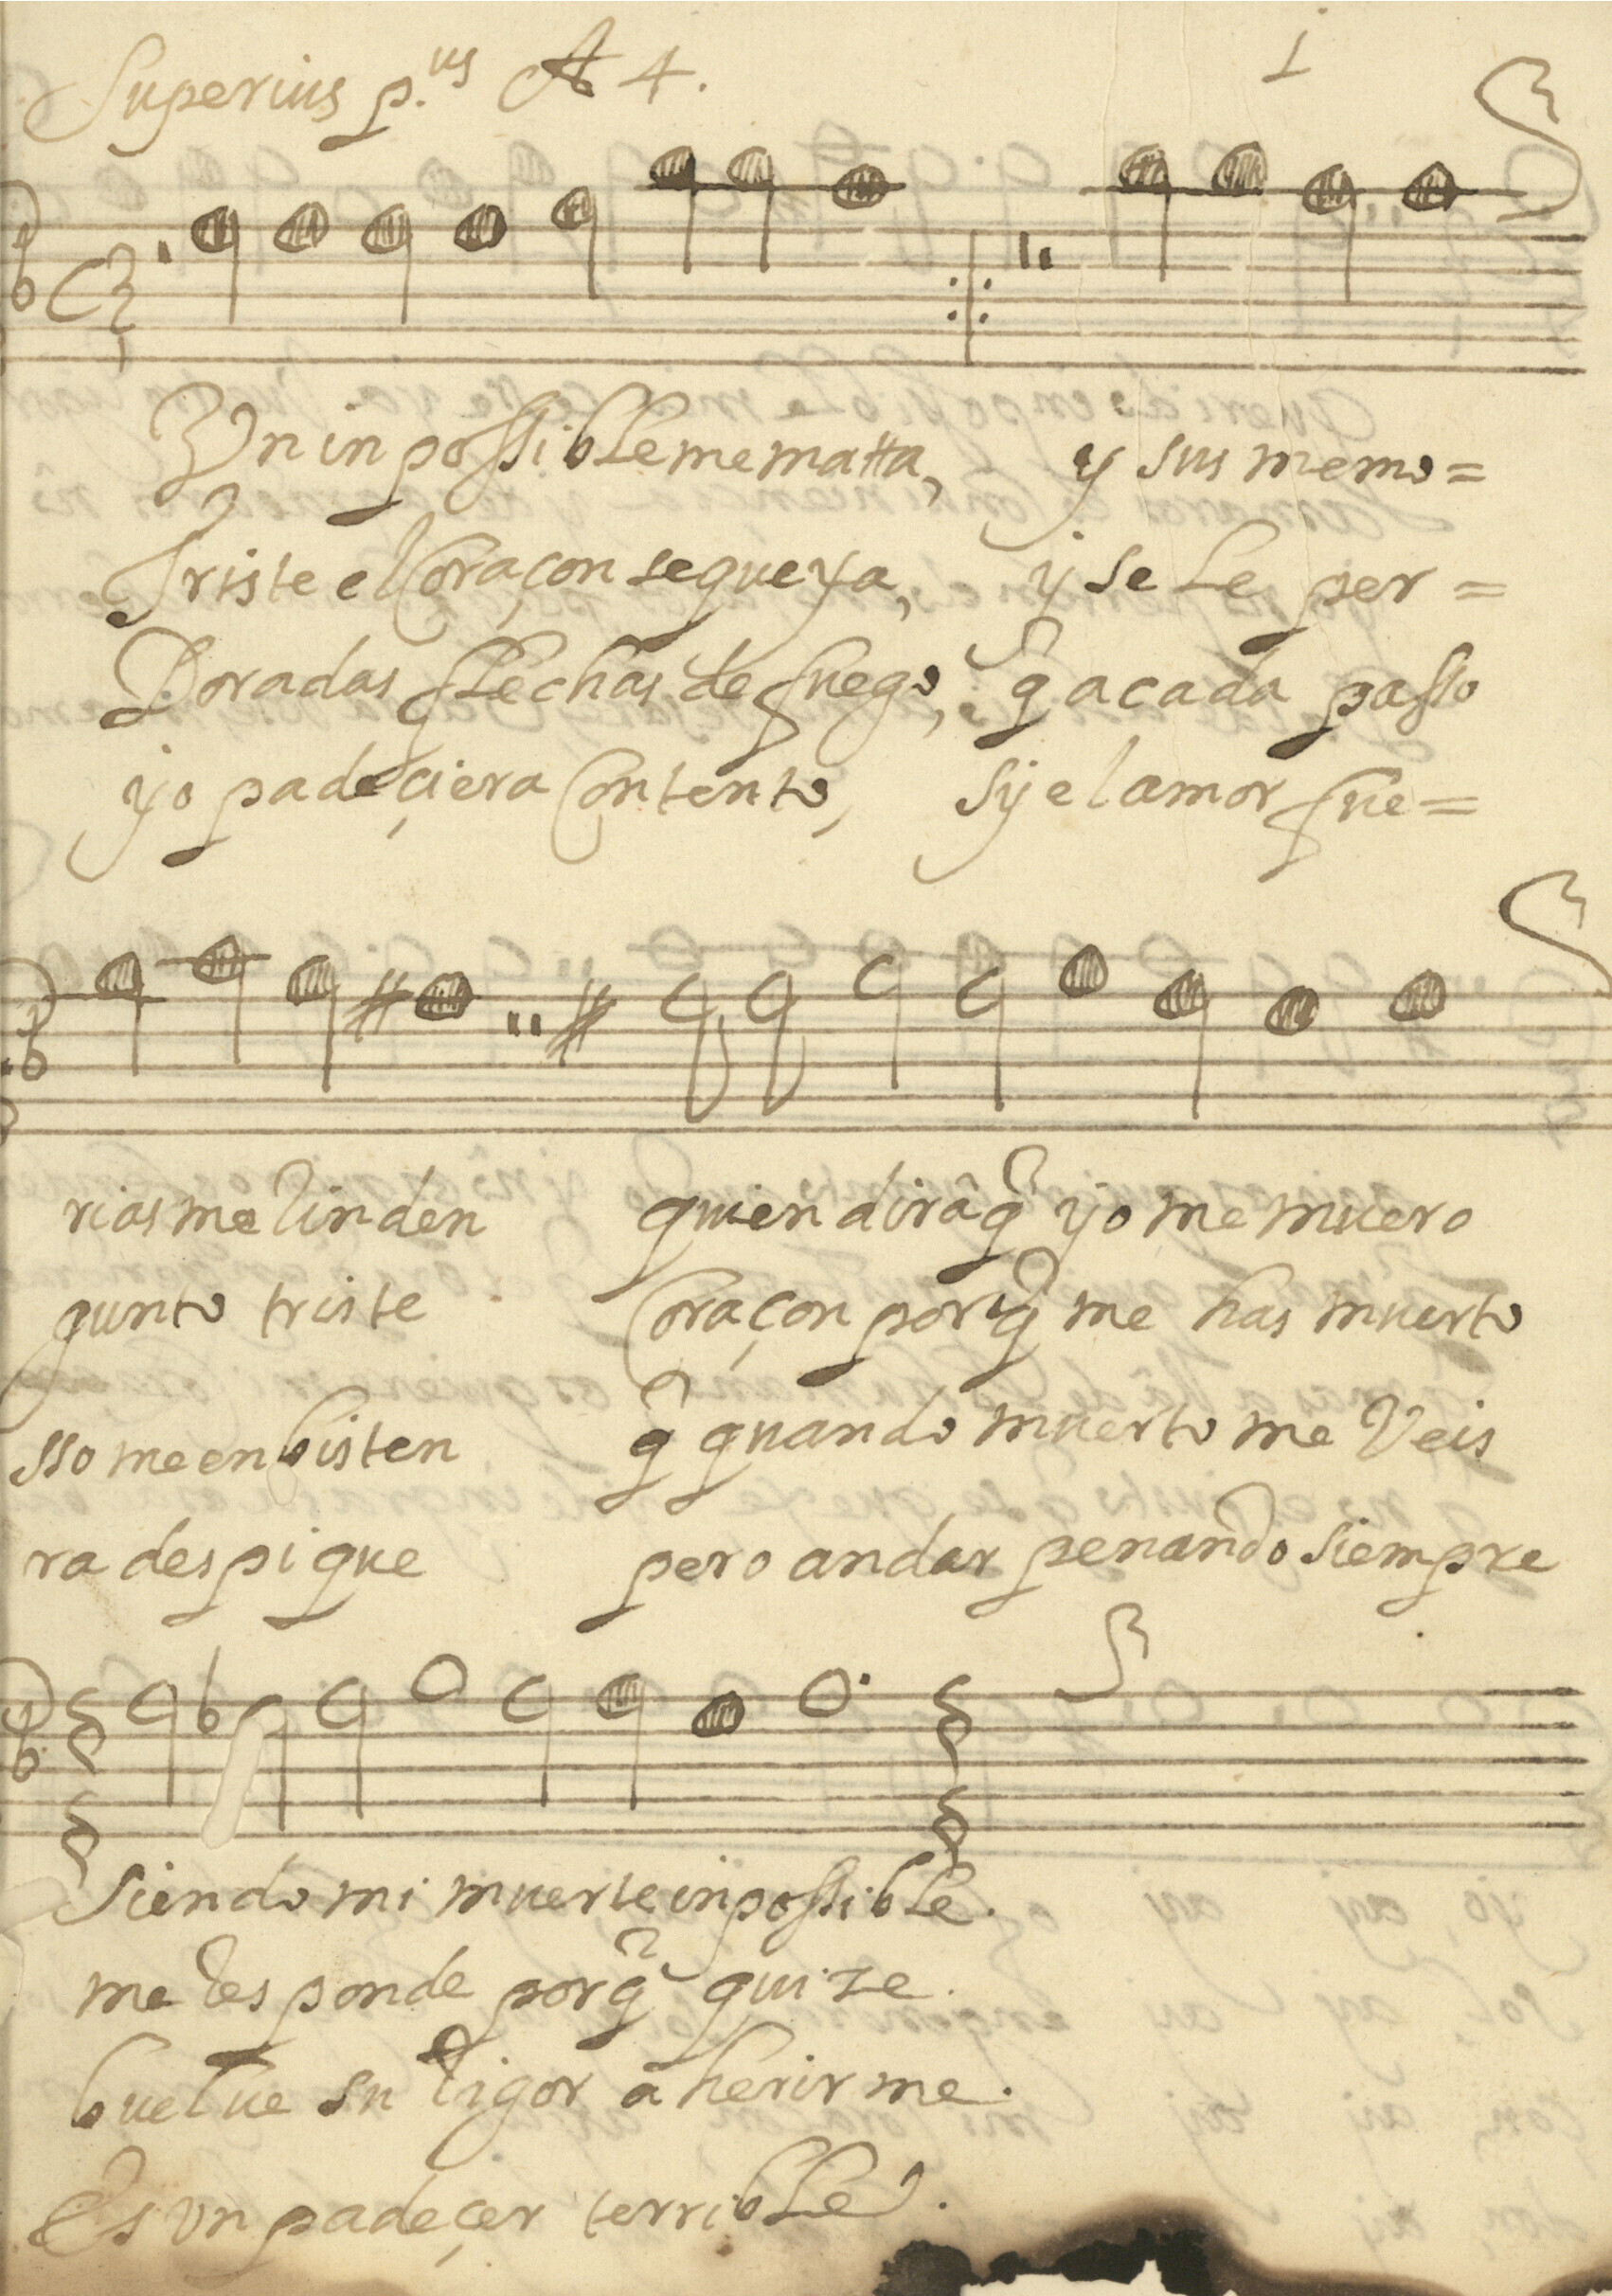 Superius p.us A 4.
1
Un inpossible me matta, y sus memo=
Triste el Coraçon se queya, y se le per=
Doradas flechas de fuego, q̃ a cada passo
yo padeçiera Contento, sy el amor fue=
rias me Rinden quien dirâ q̃ yo me muero
gunto triste Coraçon porq̃ me has muerto
sso me enbisten q̃ quando muerto me Veis
ra despique pero andar penando siempre
siendo mi muerte inpossible.
me Responde porq̃ quize.
buelve su Rigor a herirme.
Es vn padeçer terrible.